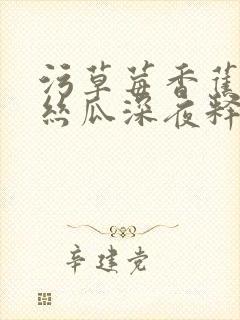 污草莓香蕉
丝瓜深夜释
辛建党